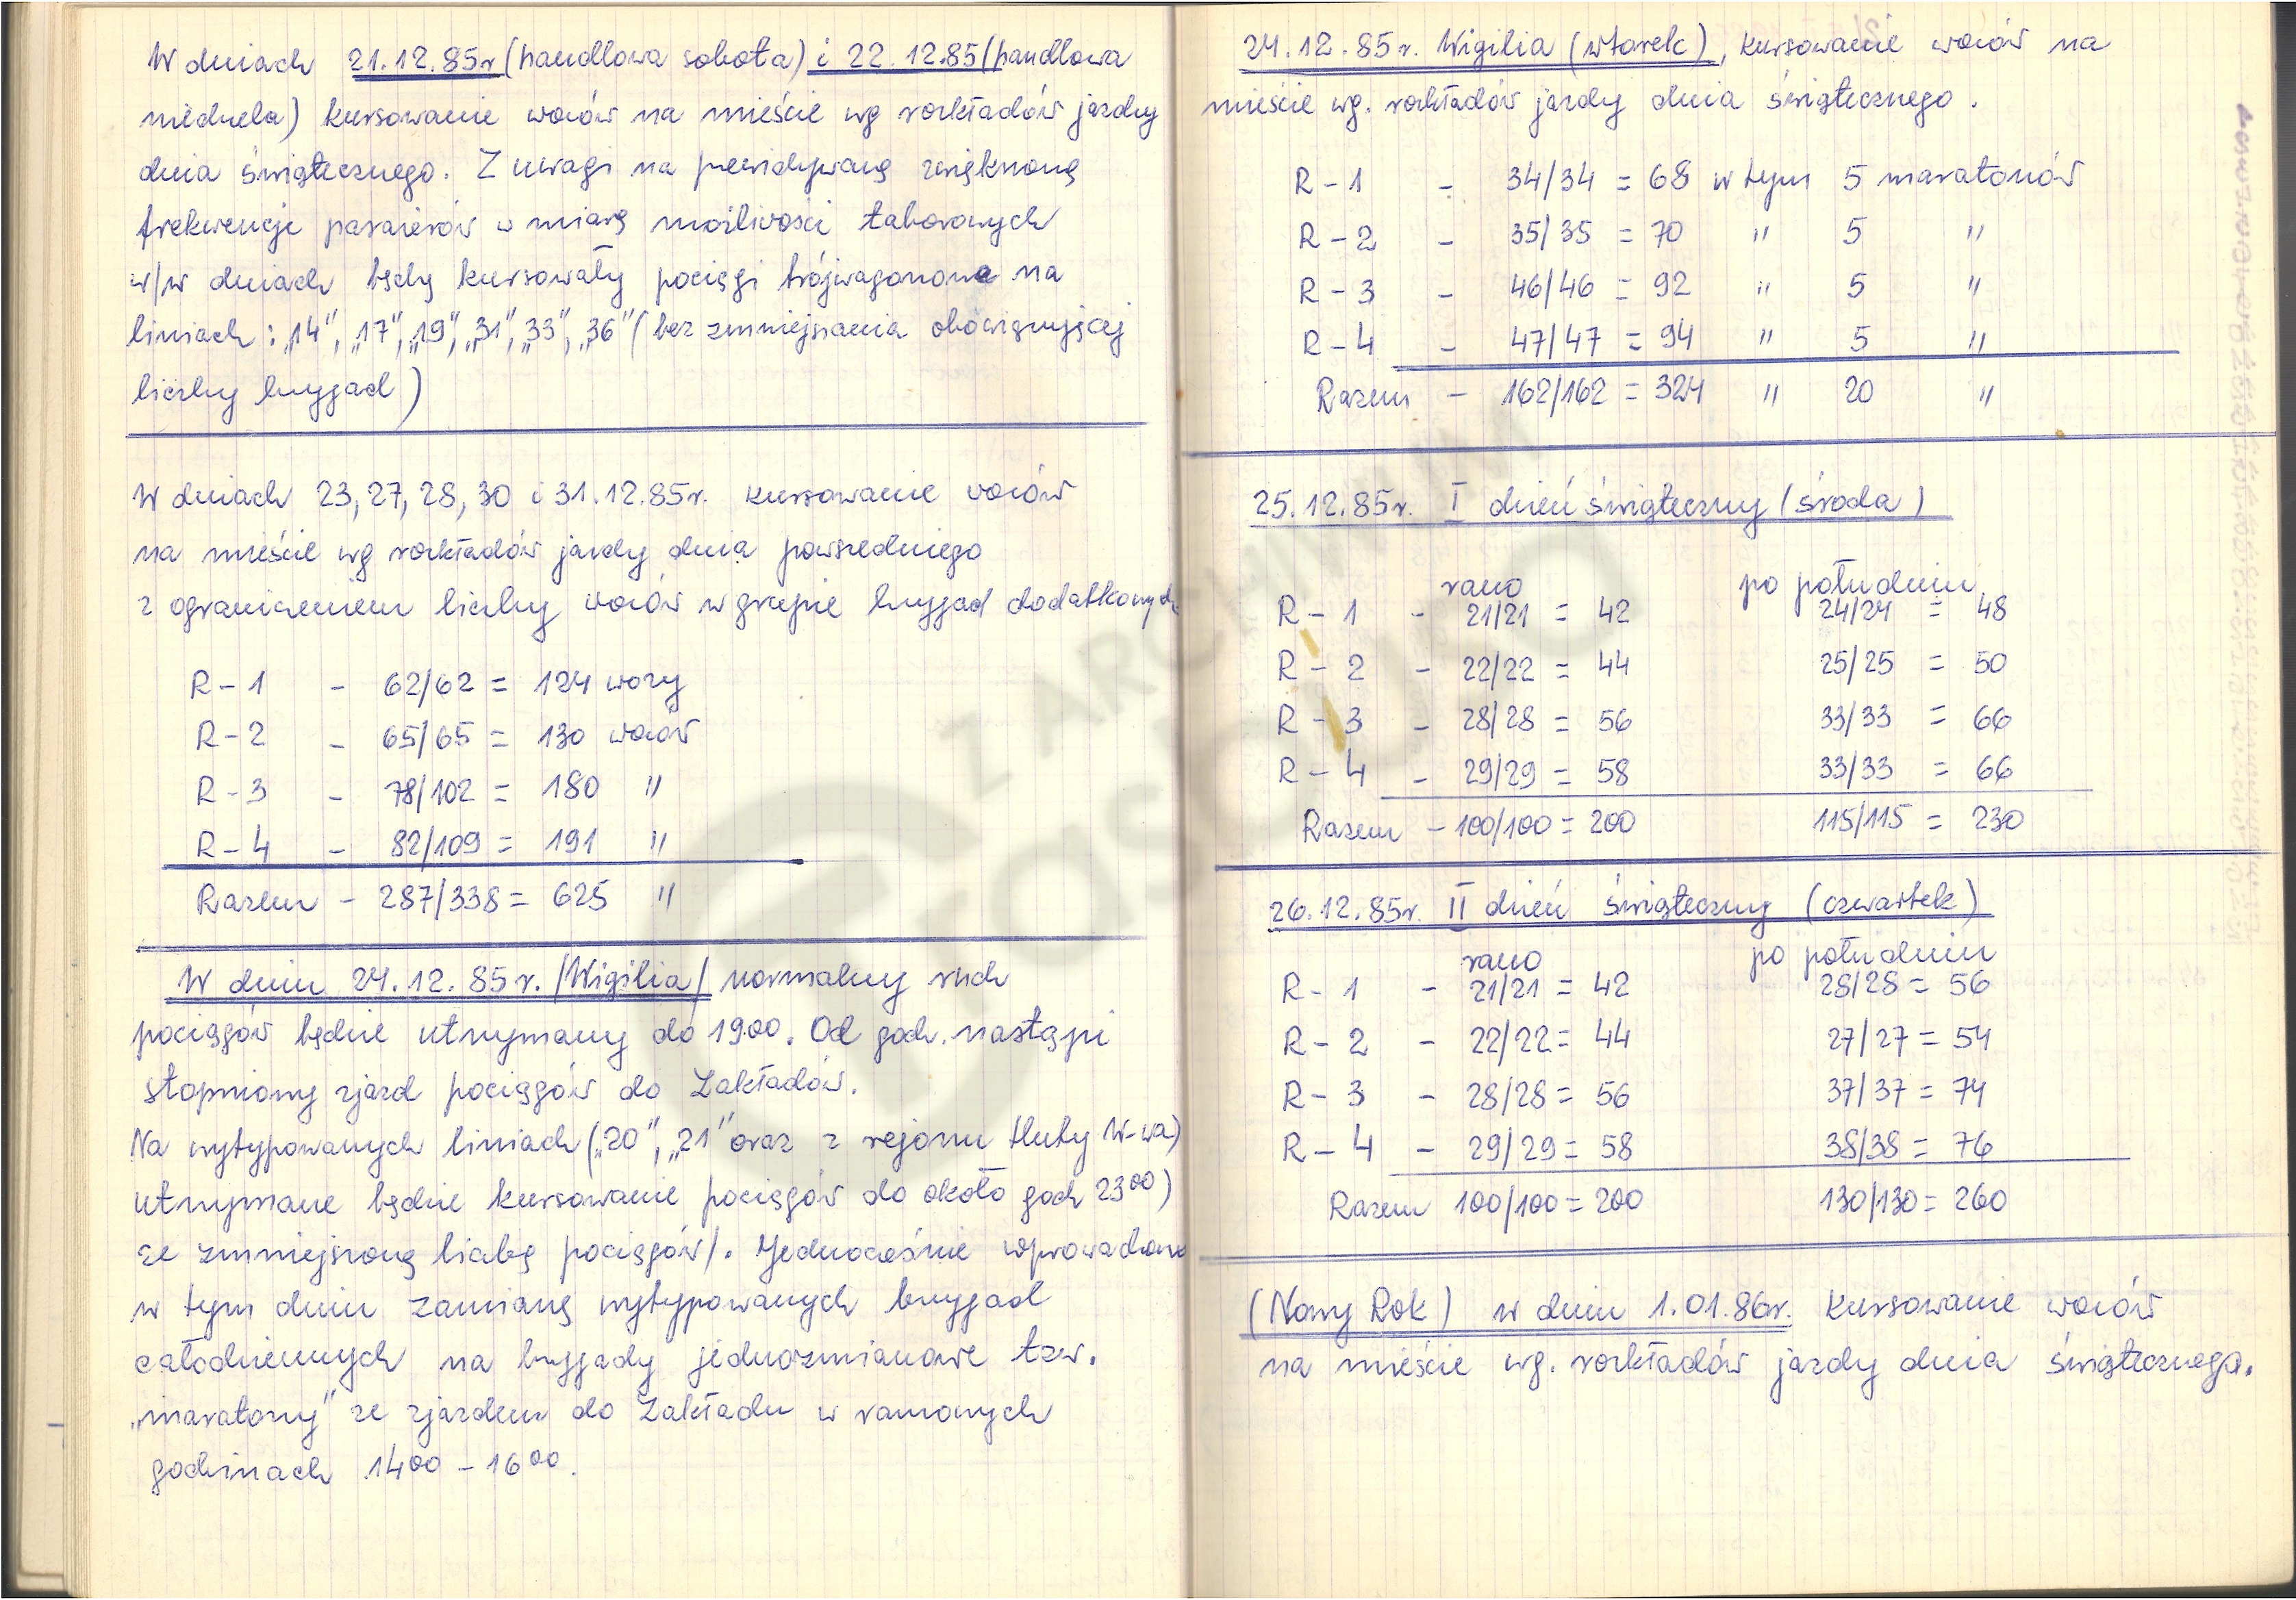 W dniach 21.12.85r (handlowa sobota) i 22.12.85 (handlowa
niedziela) kursowanie wozów na mieście wg rozkładów jazdy
dnia świątecznego. Z uwagi na przewidywaną zwiększoną
frekwencję pasażerów w miarę możliwości taborowych
w/w dniach będą kursowały pociągi trójwagonowe na
liniach: „14", „17", „19", „31", „33", „36" (bez zmniejszania obowiązującej
liczby brygad)
W dniach 23, 27, 28, 30 i 31.12.85r. kursowanie wozów
na mieście wg rozkładów jazdy dnia powszedniego
z ograniczeniem liczby wozów w grupie brygad dodatkowych
R-1 - 62/62 = 124 wozy
R-2 - 65/65 = 130 wozów
R-3 - 78/102 = 180 "
R-4 - 82/109 = 191 "
Razem - 287/338 = 625 "
W dniu 24.12.85r. /Wigilia/ normalny ruch
pociągów będzie utrzymany do 19.00. Od godz. nastąpi
stopniowy zjazd pociągów do Zakładów.
Na wytypowanych liniach („20", „21" oraz z rejonu Huty W-wa)
utrzymane będzie kursowanie pociągów do około godz 23⁰⁰)
ze zmniejszoną liczbą pociągów/. Jednocześnie wprowadzono
w tym dniu zamianę wytypowanych brygad
całodziennych na brygady jednozmianowe tzw.
„maratony" ze zjazdem do Zakładu w ramowych
godzinach 14⁰⁰ - 16⁰⁰.
24.12.85r. Wigilia (wtorek), kursowanie wozów na
mieście wg. rozkładów jazdy dnia świątecznego.
R-1 - 34/34 = 68 w tym 5 maratonów
R-2 - 35/35 = 70 " 5 "
R-3 - 46/46 = 92 " 5 "
R-4 - 47/47 = 94 " 5 "
Razem - 162/162 = 324 " 20 "
25.12.85r. I dzień świąteczny (środa)
rano po południu
R-1 - 21/21 = 42 24/24 = 48
R-2 - 22/22 = 44 25/25 = 50
R-3 - 28/28 = 56 33/33 = 66
R-4 - 29/29 = 58 33/33 = 66
Razem - 100/100 = 200 115/115 = 230
26.12.85r. II dzień świąteczny (czwartek)
rano po południu
R-1 - 21/21 = 42 28/28 = 56
R-2 - 22/22 = 44 27/27 = 54
R-3 - 28/28 = 56 37/37 = 74
R-4 - 29/29 = 58 38/38 = 76
Razem 100/100 = 200 130/130 = 260
(Nowy Rok) w dniu 1.01.86r. kursowanie wozów
na mieście wg. rozkładów jazdy dnia świątecznego.